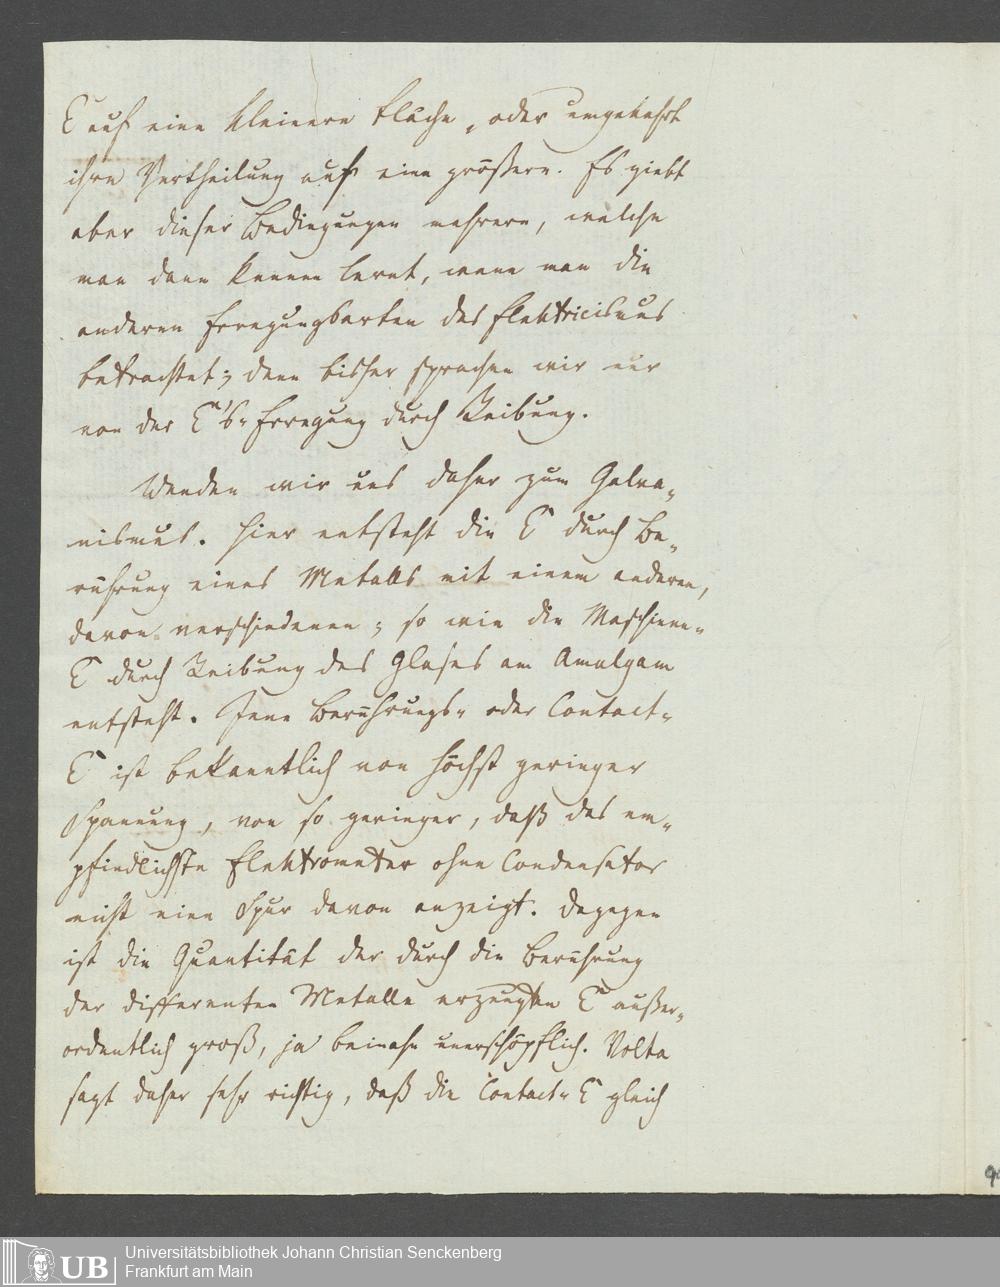 E auf eine kleinere Fläche, oder umgekehrt
ihre Vertheilung auf eine größere. Es giebt
aber dieser Bedingungen mehrere, welche
man dann kennen lernt, wenn man die
anderen Erregungsarten des Elektricismus
betrachtet; denn bisher sprachen wir nur
von der E's-Erregung durch Reibung.
Wenden wir uns daher zum Galva-
nismus. Hier entsteht die E durch Be-
rührung eines Metalls mit einem anderen,
davon verschiedenen; so wie die Maschinen-
E durch Reibung des Glases am Amalgam
entsteht. Jene Berührungs- oder Contact-
E ist bekanntlich von höchst geringer
Spannung, von so geringer, daß das em-
pfindlichste Elektrometer ohne Condensator
nicht eine Spur davon anzeigt. Dagegen
ist die Quantität der durch die Berührung
der differenten Metalle erzeugten E außer-
ordentlich groß, ja beinahe unerschöpflich. Volta
sagt daher sehr richtig, daß die Contact-E gleich
UB
Universitätsbibliothek Johann Christian Senckenberg
Frankfurt am Main